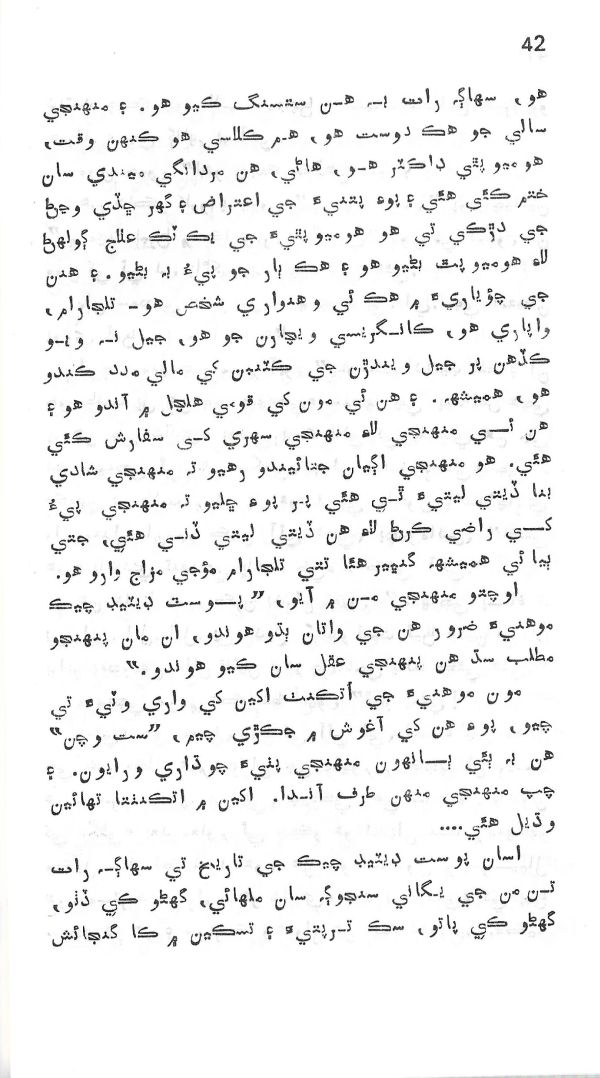 42
هو، سهاڳ رات بہ هن سقسنگ ڪيو هو. ۽ منهنجي
سالي جو هڪ دوست هو، هم ڪلاسي هو ڪنهن وقت،
هوميوپٿي ڊاڪٽر هو، هاڻي، هن مردانگي ميندي سان
ختم ڪئي هئي ۽ پوءِ پتنيءَ جي اعتراض ۽ گهر ڇڏي وڃڻ
جي دڙڪي تي هو هوميوپٿيءَ جي يڪ ٽڪ علاج ڳولهڻ
لاءِ هوميوپٿ بڻيو هو ۽ هڪ ٻار جو پيءُ بہ بڻيو. ۽ هنن
جي چؤياريءَ ۾ هڪ ئي وهنواري شخص هو۔ تلڇارام،
واپاري هو، ڪانگريسي ويچارن جو هو، جيل نہ ويو
ڪڏهن پر جيل ويندڙن جي ڪٽنبن کي مالي مدد ڪندو
هو، هميشہ. ۽ هن ئي مون کي قومي هلچل ۾ آندو هو ۽
هن ئي منهنجي لاءِ منهنجي سهري کي سفارش ڪئي
هئي. هو منهنجي اڳيان جتائيندو رهيو تہ منهنجي شادي
بنا ڏيتي ليتيءَ ٿي هئي پر پوءِ چليو تہ منهنجي پيءُ
کي راضي ڪرڻ لاءِ هن ڏيتي ليتي ڏني هئي، جتي
ٻيا ئي هميشہ گنڀير هئا تتي تلڇارام مؤجي مزاج وارو هو.
اوچتو منهنجي من ۾ آيو، ”پوسٽ ڊيٽيڊ چيڪ
موهنيءَ ضرور هن جي واتان ٻڌو هوندو، ان مان پنهنجو
مطلب سڌ هن پنهنجي عقل سان ڪيو هوندو.“
مون موهنيءَ جي اُتڪنٺ اکين کي واري وٽيءَ تي
چيو، پوءِ هن کي آغوش ۾ جڪڙي چيم، ”ست وچن“
هن بہ ٻئي ٻانهون منهنجي پٺيءَ چوڌاري ورايون. ۽
چپ منهنجي منهن طرف آندا. اکين ۾ اتڪنٺتا تهائين
وڌيل هئي....
اسان پوسٽ ڊيٽيڊ چيڪ جي تاريخ تي سهاڳ رات
تن من جي يگانگي سنجوڳ سان ملهائي، گهڻو ڪي ڏٺو،
گهڻو ڪي پاتو، سڪ ترپتيءَ ۽ تسڪين ۾ ڪا گنجائش